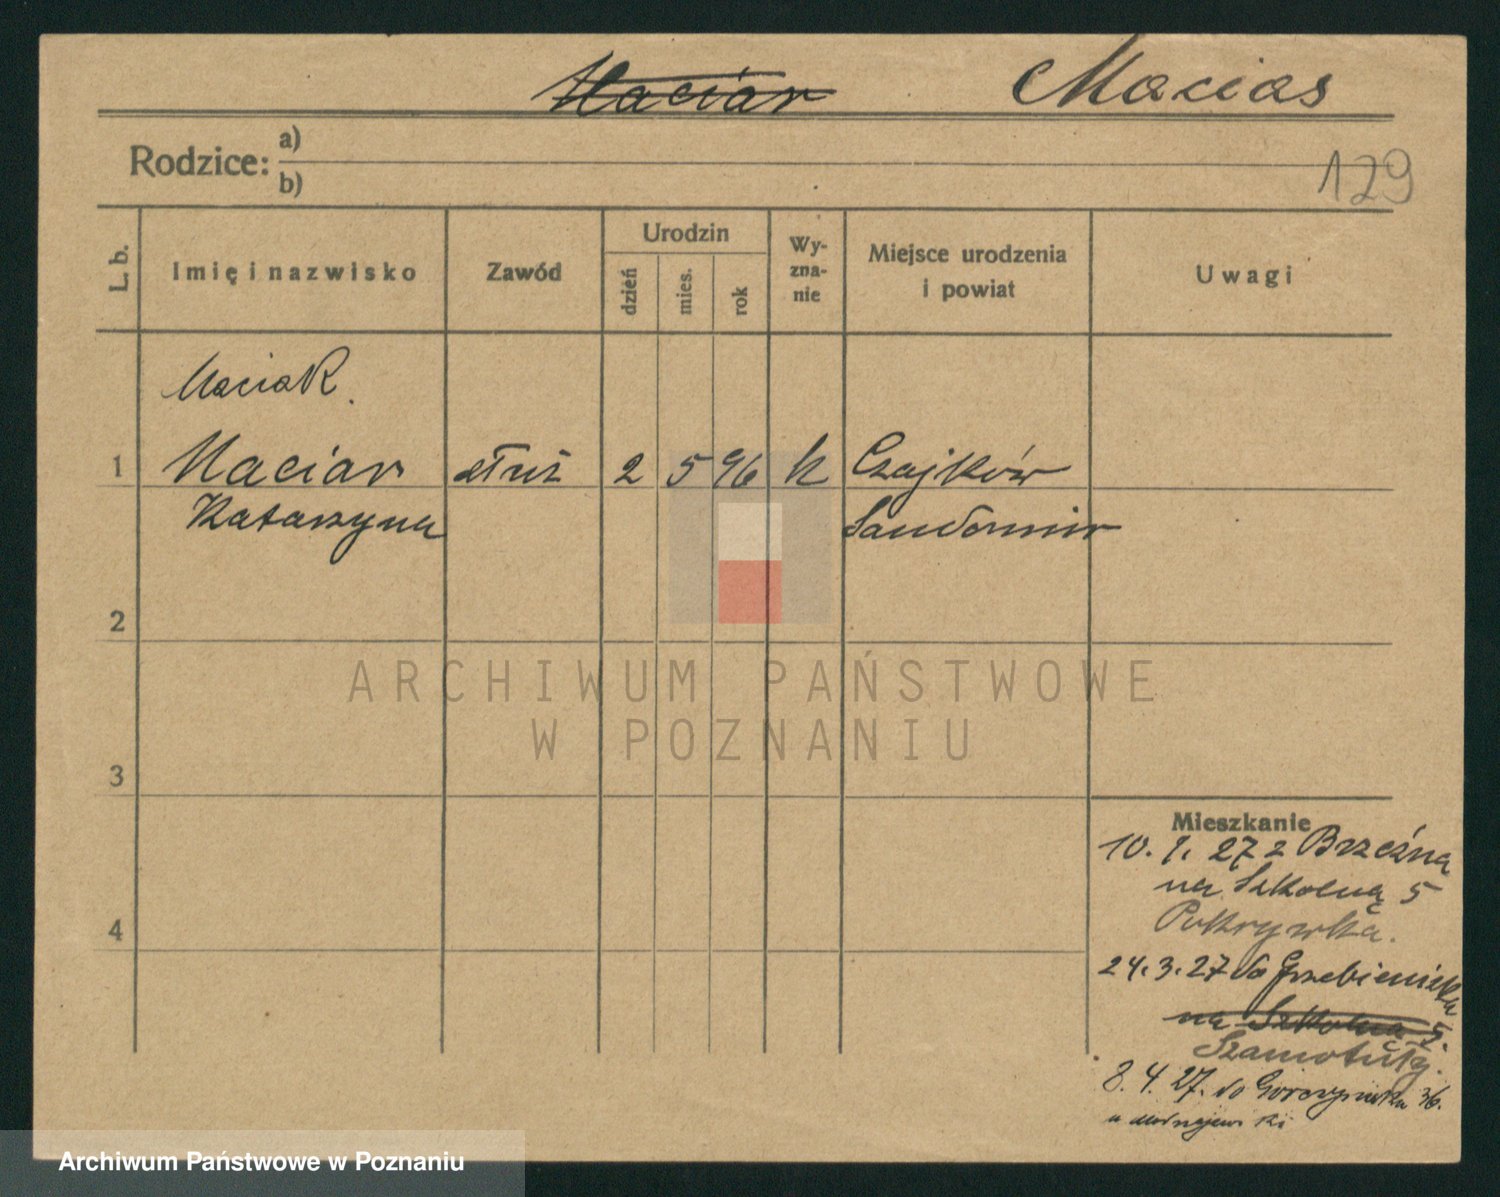 Maciar Macias
Rodzice: a)
b)
129
L. b.
Imię i nazwisko
Zawód
Urodzin
dzień
mies.
rok
Wy-
zna-
nie
Miejsce urodzenia
i powiat
Uwagi
Maciak.
1 Maciar służ 2 5 96 k Czajków
Katarzyna Sandomir
2
3
4
Mieszkanie
10. 1. 27 z Brzeźna
na Szkolną 5
Pokrywka.
24.3.27 do Grzebieniska
na Szkolna 5.
Szamotuły.
8. 4. 27. do Gorczyńska 36.
u
ARCHIWUM PAŃSTWOWE
W POZNANIU
Archiwum Państwowe w Poznaniu